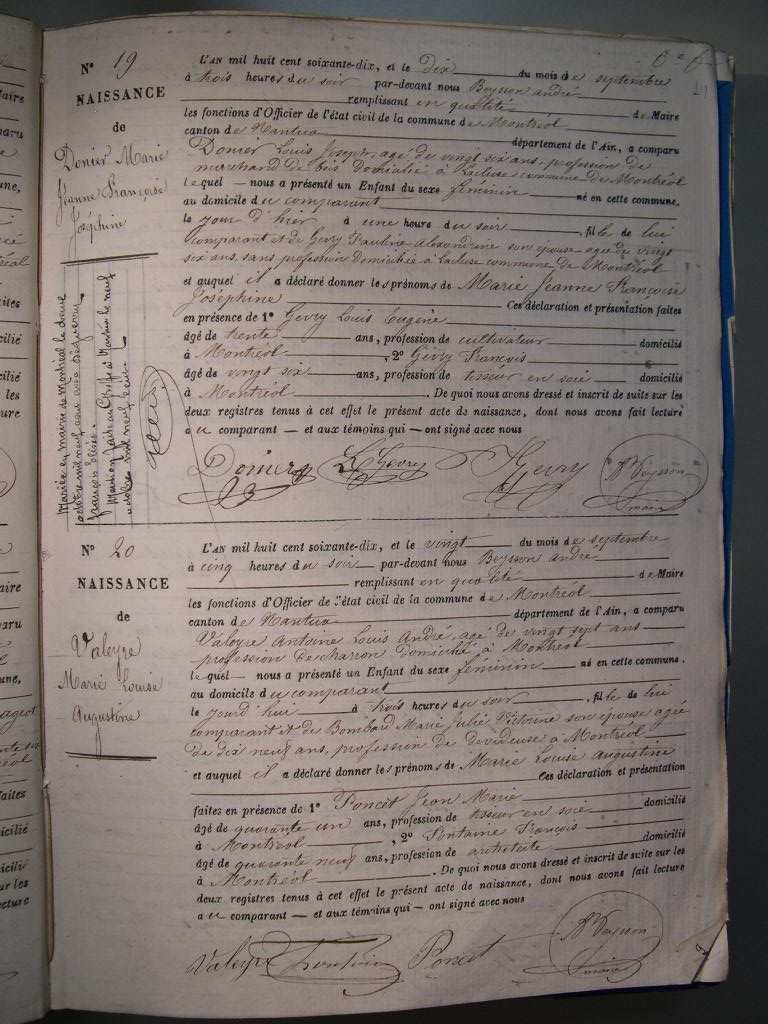 Nº 19
NAISSANCE
de
Donier Marie
Jeanne Françoise
Joséphine
Mariée en mairie de Montréal le douze
octobre mil neuf cent
françois
L'AN mil huit cent soixante-dix, et le dix du mois de septembre
à trois heures du soir par-devant nous Beysson andré
remplissant en qualité de Maire
les fonctions d'Officier de l'état civil de la commune de Montréal
canton de Nantua département de l'Ain, a comparu
Donier Louis Joseph, agé de vingt six ans, profession de
marchand de bois Domicilié à Lacluse commune de Montréal
lequel — nous a présenté un Enfant du sexe féminin né en cette commune,
au domicile du comparant
le jour d'hier à une heure du soir, fille de lui
comparant et de Gevry Pauline alexandrine son épouse agée de vingt
six ans, sans profession Domiciliée à Lacluse commune de Montréal
et auquel il a déclaré donner les prénoms de Marie Jeanne Françoise
Joséphine Ces déclaration et présentation faites
en présence de 1º Gevry Louis Eugène
âgé de trente ans, profession de cultivateur domicilié
à Montréal, 2º Gevry François
âgé de vingt six ans, profession de tisseur en soie domicilié
à Montréal. De quoi nous avons dressé et inscrit de suite sur les
deux registres tenus à cet effet le présent acte de naissance, dont nous avons fait lecture
au comparant — et aux témoins qui — ont signé avec nous
Donier L Gevry Gevry A Beysson
maire
Nº 20
NAISSANCE
de
Valeyre
Marie Louise
Augustine
L'AN mil huit cent soixante-dix, et le vingt du mois de septembre
à cinq heures du soir par-devant nous Beysson andré
remplissant en qualité de Maire
les fonctions d'Officier de l'état civil de la commune de Montréal
canton de Nantua département de l'Ain, a comparu
Valeyre Antoine Louis André, agé de vingt sept ans
profession de charron domicilié à Montréal
lequel — nous a présenté un Enfant du sexe féminin né en cette commune,
au domicile du comparant
le jourd'hui à trois heures du soir, fille de lui
comparant et de Bombard Marie Julie son épouse agée
de dix neuf ans, profession de dévideuse à Montréal
et auquel il a déclaré donner les prénoms de Marie Louise augustine
Ces déclaration et présentation
faites en présence de 1º Poncet Jean Marie
âgé de quarante un ans, profession de tisseur en soie domicilié
à Montréal, 2º Fontaine François
âgé de quarante neuf ans, profession de architecte domicilié
à Montréal. De quoi nous avons dressé et inscrit de suite sur les
deux registres tenus à cet effet le présent acte de naissance, dont nous avons fait lecture
au comparant — et aux témoins qui — ont signé avec nous
Valeyre Fontaine Poncet A Beysson
maire